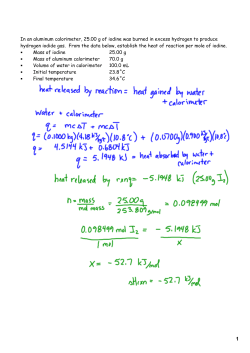 In an aluminum calorimeter, 25.00 g of iodine was burned in excess hydrogen to produce
hydrogen iodide gas. From the data below, establish the heat of reaction per mole of iodine.
• Mass of iodine 25.00 g
• Mass of aluminum calorimeter 70.0 g
• Volume of water in calorimeter 100.0 mL
• Initial temperature 23.8˚C
• Final temperature 34.6˚C
heat released by reaction = heat gained by water
+ calorimeter
water + calorimeter
q = mcΔT + mcΔT
q = (0.1000 kg)(4.18 kJ/kg°C)(10.8°C) + (0.0700 kg)(0.900 kJ/kg°C)(10.8°C)
q = 4.5144 kJ + 0.6804 kJ
q = 5.1948 kJ = heat absorbed by water +
calorimeter
heat released by rxn = -5.1948 kJ (25.00g I₂)
n = mass / md mass = 25.00g / 253.809 g/mol = 0.098499 mol
0.098499 mol I₂ = - 5.1948 kJ
1 mol x
x = -52.7 kJ/mol
ΔHrxn = -52.7 kJ/mol
1